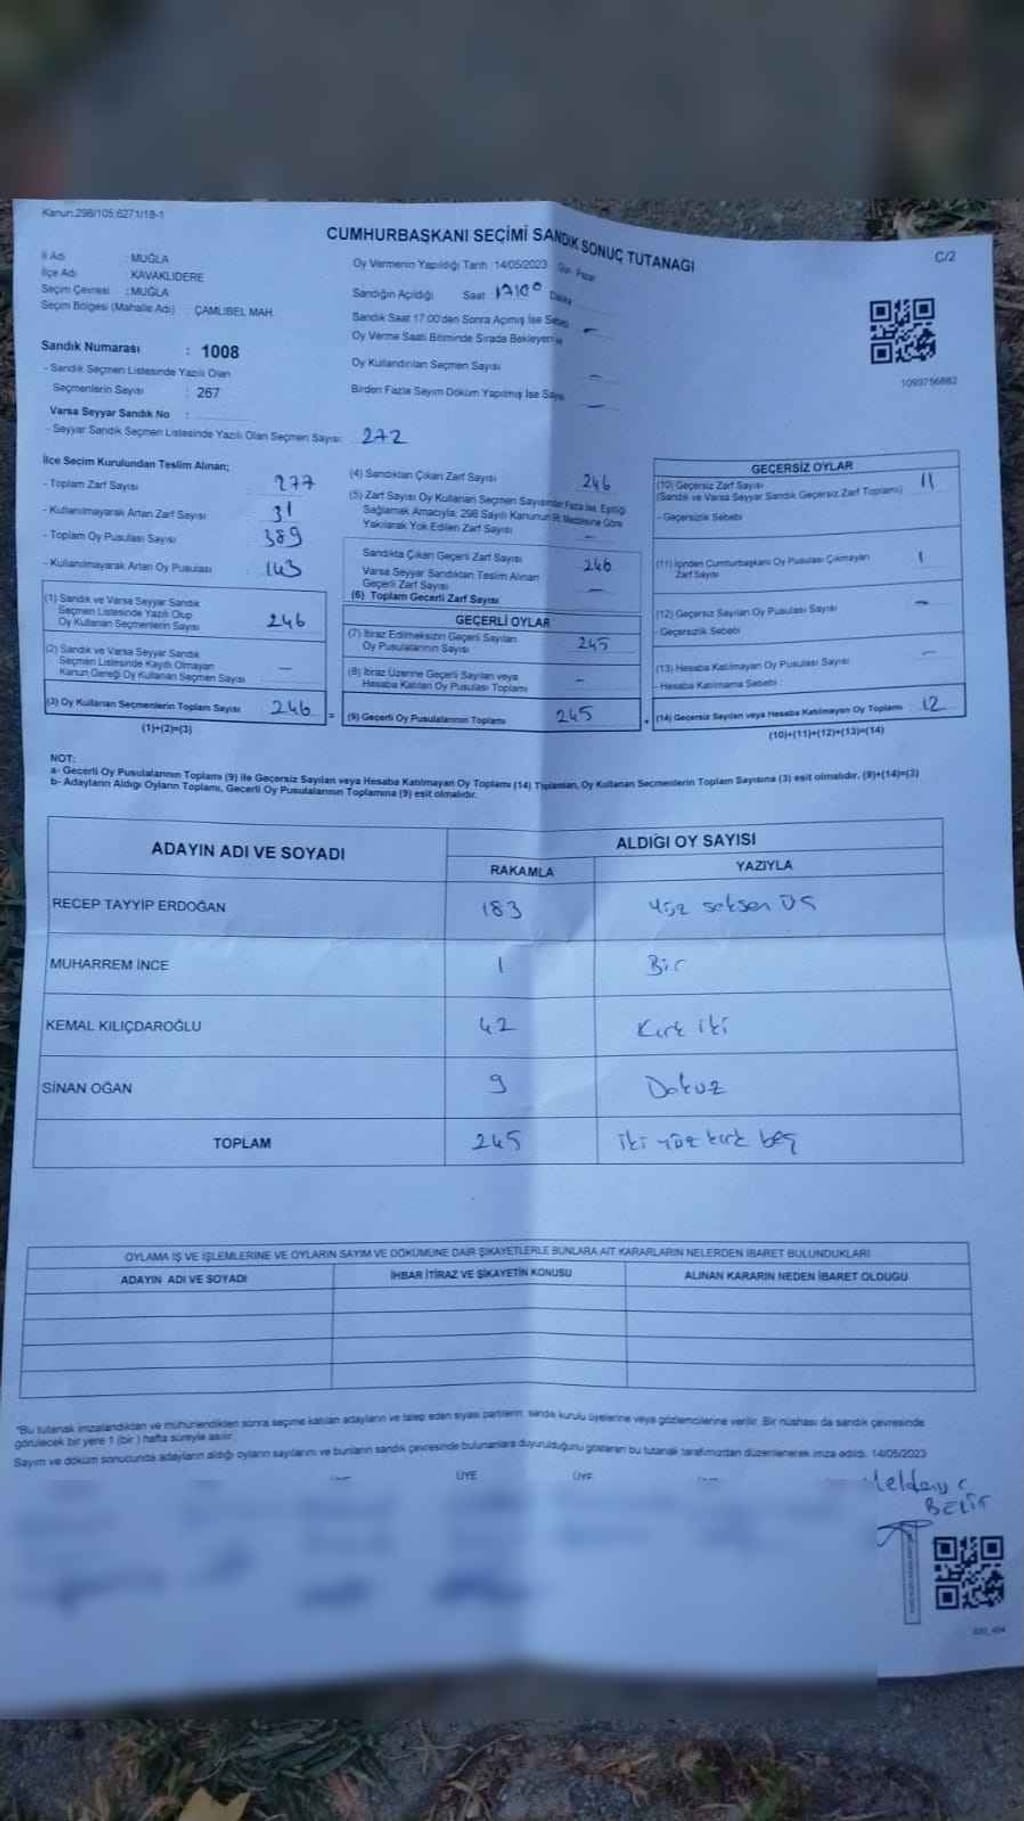 Kanun:298/105;6271/18-1
CUMHURBAŞKANI SEÇİMİ SANDIK SONUÇ TUTANAĞI
C/2
İl Adı : MUĞLA
İlçe Adı : KAVAKLIDERE
Seçim Çevresi : MUĞLA
Seçim Bölgesi (Mahalle Adı) : ÇAMLIBEL MAH.
Oy Vermenin Yapıldığı Tarih :14/05/2023 Gün Pazar
Sandığın Açıldığı Saat 17:00 Dakika
Sandık Saat 17:00'den Sonra Açımış İse Sebebi
Oy Verme Saati Bitiminde Sırada Bekleyen
Oy Kullandırılan Seçmen Sayısı
Birden Fazla Sayım Döküm Yapılmış İse Sayısı
1093756882
Sandık Numarası : 1008
- Sandık Seçmen Listesinde Yazılı Olan
Seçmenlerin Sayısı : 267
Varsa Seyyar Sandık No :
- Seyyar Sandık Seçmen Listesinde Yazılı Olan Seçmen Sayısı: 272
İlce Secim Kurulundan Teslim Alınan;
- Toplam Zarf Sayısı 277
- Kullanılmayarak Artan Zarf Sayısı 31
- Toplam Oy Pusulası Sayısı 389
- Kullanılmayarak Artan Oy Pusulası 143
(1) Sandık ve Varsa Seyyar Sandık
Seçmen Listesinde Yazılı Olup
Oy Kullanan Seçmenlerin Sayısı 246
(2) Sandık ve Varsa Seyyar Sandık
Seçmen Listesinde Kayıtlı Olmayan
Kanun Gereği Oy Kullanan Seçmen Sayısı —
(3) Oy Kullanan Seçmenlerin Toplam Sayısı 246 =
(1)+(2)=(3)
(4) Sandıktan Çıkan Zarf Sayısı 246
(5) Zarf Sayısı Oy Kullanan Seçmen Sayısından Fazla İse, Eşitliği
Sağlamak Amacıyla, 298 Sayılı Kanunun Maddesine Göre
Yakılarak Yok Edilen Zarf Sayısı —
Sandıkta Çıkan Geçerli Zarf Sayısı 246
Varsa Seyyar Sandıktan Teslim Alınan
Geçerli Zarf Sayısı —
(6) Toplam Gecerli Zarf Sayısı
GEÇERLİ OYLAR
(7) İtiraz Edilmeksizin Geçerli Sayılan
Oy Pusulalarının Sayısı 245
(8) İtiraz Üzerine Geçerli Sayılan veya
Hesaba Katılan Oy Pusulası Toplamı -
(9) Geçerli Oy Pusulalarının Toplamı 245 +
GEÇERSİZ OYLAR
(10) Geçersiz Zarf Sayısı 11
(Sandık ve Varsa Seyyar Sandık Geçersiz Zarf Toplamı)
- Geçersizlik Sebebi
(11) İçinden Cumhurbaşkanı Oy Pusulası Çıkmayan
Zarf Sayısı 1
(12) Geçersiz Sayılan Oy Pusulası Sayısı —
- Geçersizlik Sebebi
(13) Hesaba Katılmayan Oy Pusulası Sayısı —
- Hesaba Katılmama Sebebi :
(14) Geçersiz Sayılan veya Hesaba Katılmayan Oy Toplamı 12
(10)+(11)+(12)+(13)=(14)
NOT:
a- Gecerli Oy Pusulalarının Toplamı (9) ile Geçersiz Sayılan veya Hesaba Katılmayan Oy Toplamı (14) Toplamları, Oy Kullanan Secmenlerin Toplam Sayısına (3) esit olmalıdır. (9)+(14)=(3)
b- Adayların Aldığı Oyların Toplamı, Geçerli Oy Pusulalarının Toplamına (9) esit olmalıdır.
ADAYIN ADI VE SOYADI ALDIĞI OY SAYISI
RAKAMLA YAZIYLA
RECEP TAYYİP ERDOĞAN 183 Yüz seksen üç
MUHARREM İNCE 1 Bir
KEMAL KILIÇDAROĞLU 42 Kırk iki
SİNAN OĞAN 9 Dokuz
TOPLAM 245 iki yüz kırk beş
OYLAMA İŞ VE İŞLEMLERİNE VE OYLARIN SAYIM VE DÖKÜMÜNE DAİR ŞİKAYETLERLE BUNLARA AİT KARARLARIN NELERDEN İBARET BULUNDUKLARI
ADAYIN ADI VE SOYADI İHBAR İTİRAZ VE ŞİKAYETİN KONUSU ALINAN KARARIN NEDEN İBARET OLDUĞU
"Bu tutanak imzalandıktan ve mühürlendikten sonra seçime katılan adayların ve talep eden siyasi partilerin, sandık kurulu üyelerine veya gözlemcilerine verilir. Bir nüshası da sandık çevresinde
görülecek bir yere 1 (bir ) hafta süreyle asılır.
Sayım ve döküm sonucunda adayların aldığı oyların sayılarını ve bunların sandık çevresinde bulunanlara duyurulduğunu gösteren bu tutanak tarafımızdan düzenlenerek imza edildi. 14/05/2023
ÜYE ÜYE
BELİT